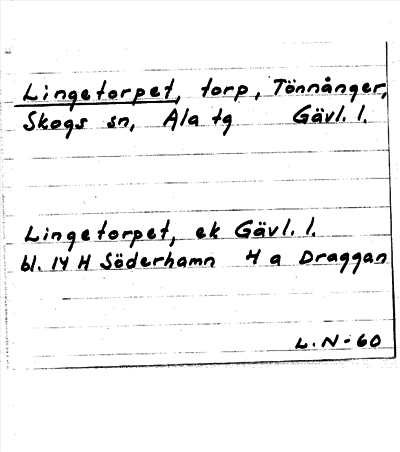 Lingetorpet, torp, Tönnånger,
Skogs sn, Ala tg Gävl. l.
Lingetorpet, ek Gävl. l.
bl. 14 H Söderhamn 4 a Draggan
L.N-60